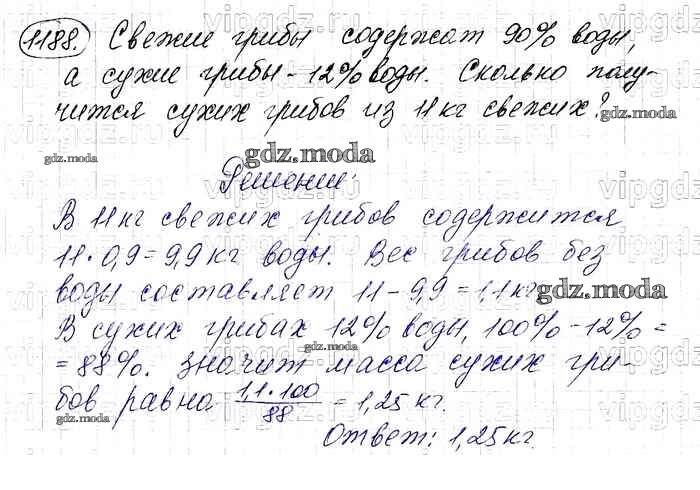 1188. Свежие грибы содержат 90% воды,
а сухие грибы - 12% воды. Сколько полу-
чится сухих грибов из 11 кг свежих?
gdz.moda
gdz.moda
Решение:
В 11 кг свежих грибов содержится
11 · 0,9 = 9,9 кг воды. Вес грибов без
воды составляет 11 - 9,9 = 1,1 кг
gdz.moda
В сухих грибах 12% воды, 100% - 12% =
gdz.moda
= 88%. Значит масса сухих гри-
бов равна 1,1 · 100 / 88 = 1,25 кг.
gdz.moda
Ответ: 1,25 кг.